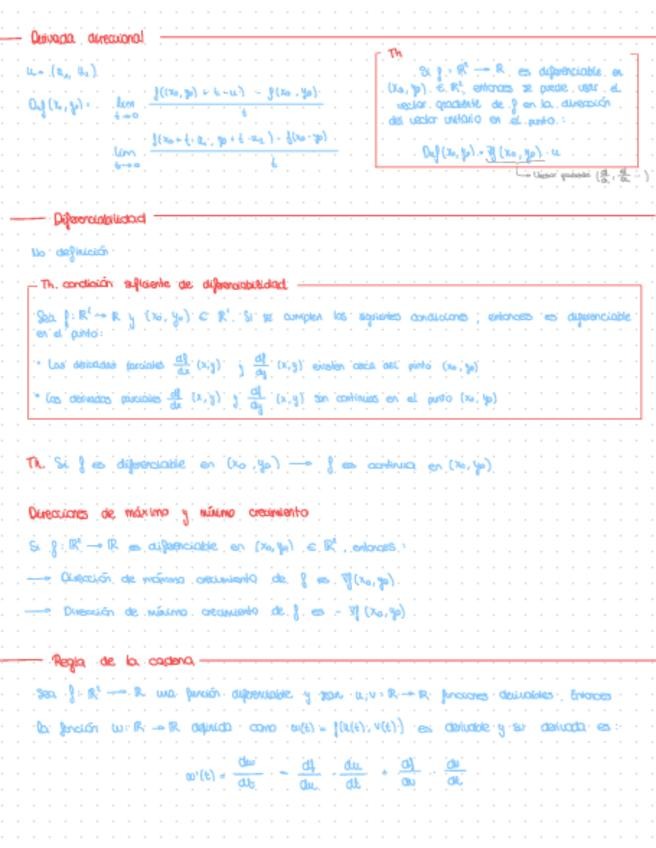 Derivada direccional
u = (u₁, u₂)
Duf(x₀,y₀) = lim t→0 f((x₀,y₀) + t·u) - f(x₀,y₀) / t
lim t→0 f(x₀+t·u₁, y₀+t·u₂) - f(x₀,y₀) / t
Th
Si f: R² → R es diferenciable en
(x₀,y₀) ∈ R², entonces se puede usar el
vector gradiente de f en la dirección
del vector unitario en el punto:
Duf(x₀,y₀) = ∇f(x₀,y₀) · u
Vector gradiente (df/dx, df/dy ...)
Diferenciabilidad
No definición
Th. condición suficiente de diferenciabilidad
Sea f: R² → R y (x₀,y₀) ∈ R². Si se cumplen las siguientes condiciones, entonces es diferenciable
en el punto:
· Las derivadas parciales df/dx (x,y) y df/dy (x,y) existen cerca del punto (x₀,y₀)
· Las derivadas parciales df/dx (x,y) y df/dy (x,y) son continuas en el punto (x₀,y₀)
Th. Si f es diferenciable en (x₀,y₀) → f es continua en (x₀,y₀)
Direcciones de máximo y mínimo crecimiento
Si f: R² → R es diferenciable en (x₀,y₀) ∈ R², entonces:
→ Dirección de máximo crecimiento de f es ∇f(x₀,y₀)
→ Dirección de mínimo crecimiento de f es - ∇f(x₀,y₀)
Regla de la cadena
Sea f: R² → R una función diferenciable y sean u,v: R → R funciones derivables. Entonces
la función w: R → R definida como w(t) = f(u(t), v(t)) es derivable y su derivada es:
w'(t) = dw/dt = df/du · du/dt + df/dv · dv/dt